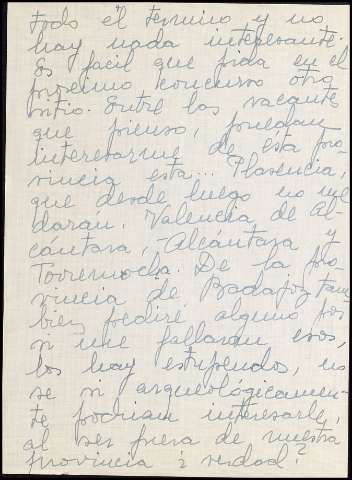 todo el termino y no
hay nada interesante.
Es facil que pida en el
proximo concurso otro
sitio. Entre las vacantes
que pienso, puedan
interesarme de esta pro-
vincia esta... Plasencia,
que desde luego no me
daran, Valencia de Al-
cántara, Alcántara y
Torremocha. De la pro-
vincia de Badajoz tam-
bien pediré alguno por
si me fallaran esos,
los hay estupendos, no
se si arqueológicamen-
te podrian interesarle,
al ser fuera de nuestra
provincia ¿verdad?